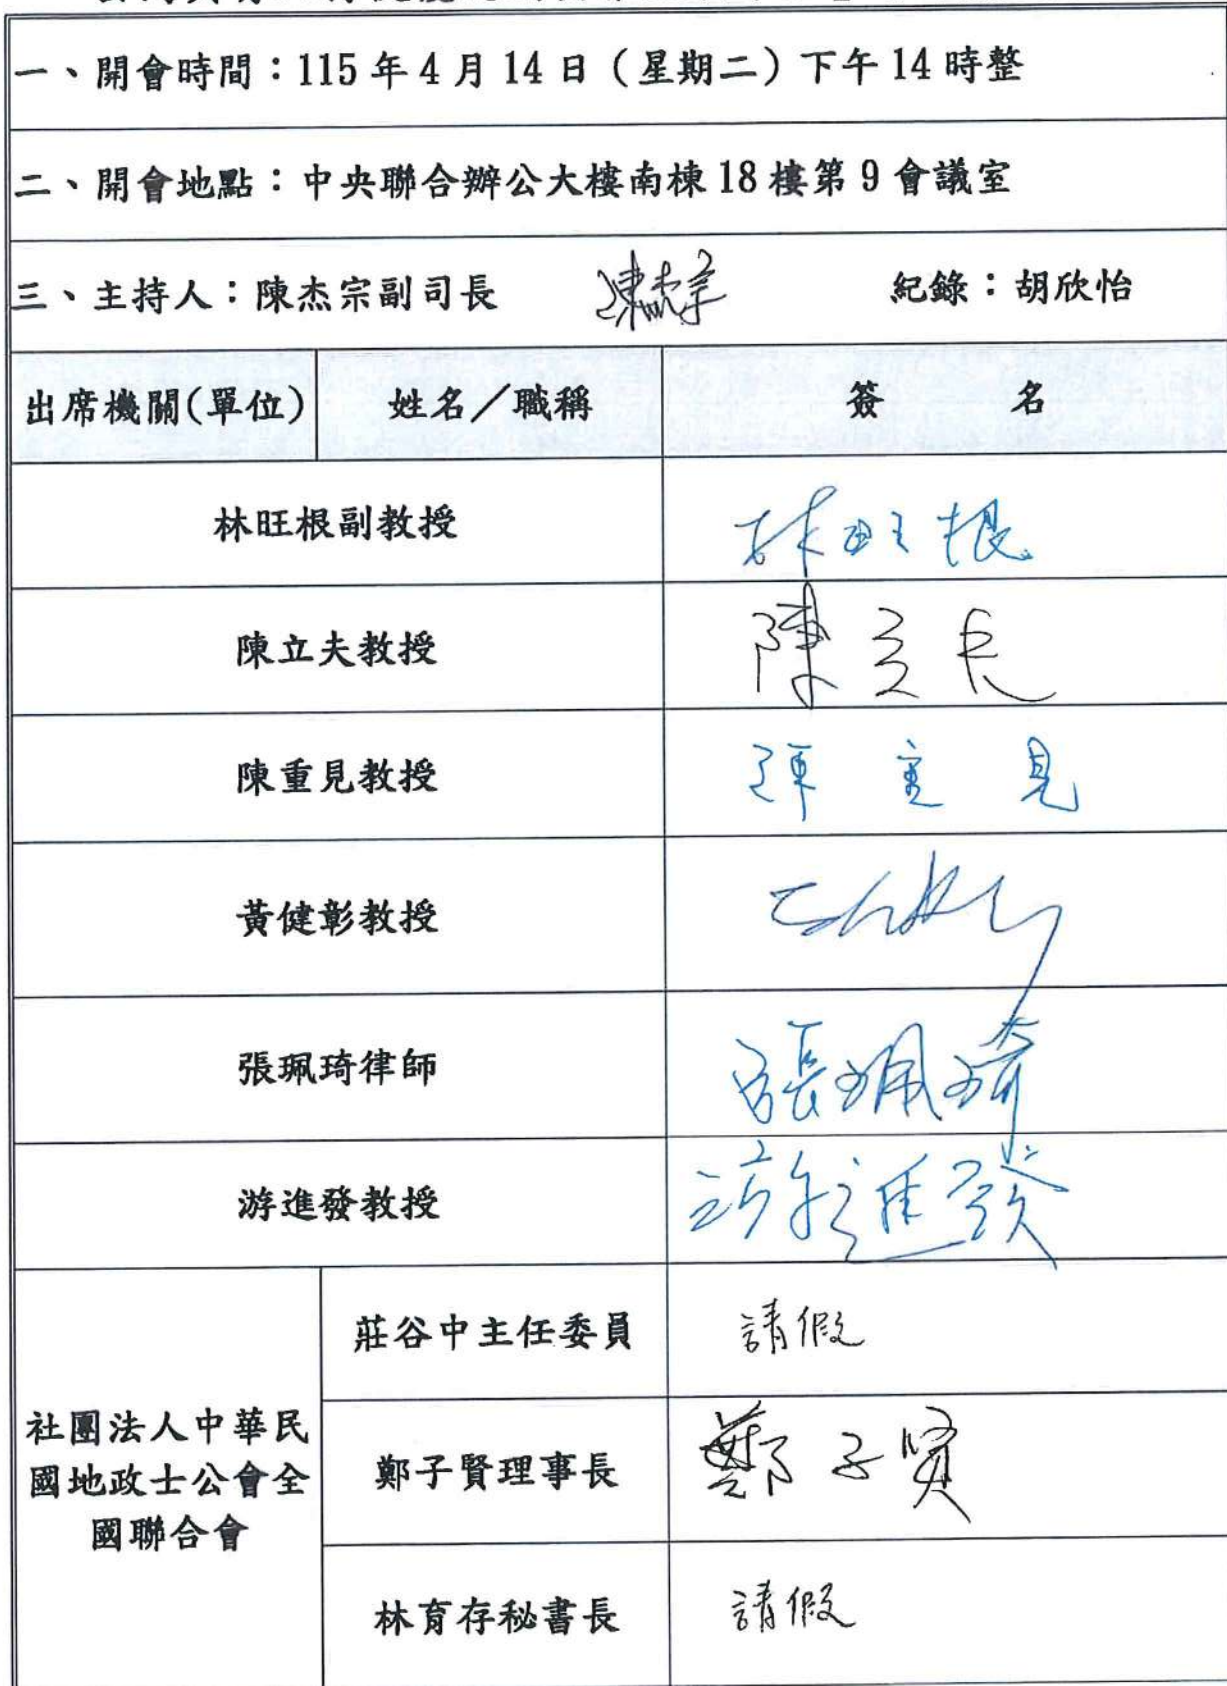 一、開會時間：115年4月14日（星期二）下午14時整
二、開會地點：中央聯合辦公大樓南棟18樓第9會議室
三、主持人：陳杰宗副司長 陳杰宗 紀錄：胡欣怡
出席機關(單位) 姓名／職稱 簽 名
林旺根副教授 林旺根
陳立夫教授 陳立夫
陳重見教授 陳重見
黃健彰教授
張珮琦律師 張珮琦
游進發教授 游進發
社團法人中華民
國地政士公會全
國聯合會
莊谷中主任委員 請假
鄭子賢理事長 鄭子賢
林育存秘書長 請假